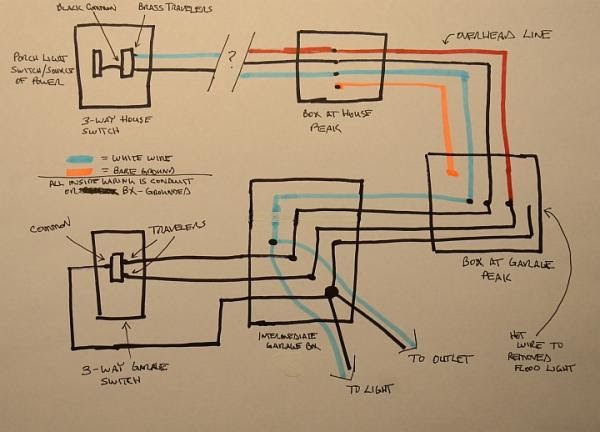 BLACK COMMON
BRASS TRAVELERS
PORCH LIGHT
SWITCH/SOURCE
OF POWER
?
OVERHEAD LINE
3-WAY HOUSE
SWITCH
BOX AT HOUSE
PEAK
= WHITE WIRE
= BARE GROUND
ALL INSIDE WIRING IS CONDUIT
OR BX-GROUNDED
COMMON
TRAVELERS
BOX AT GARAGE
PEAK
INTERMEDIATE
GARAGE BOX
3-WAY GARAGE
SWITCH
TO OUTLET
TO LIGHT
HOT
WIRE TO
REMOVED
FLOOD LIGHT